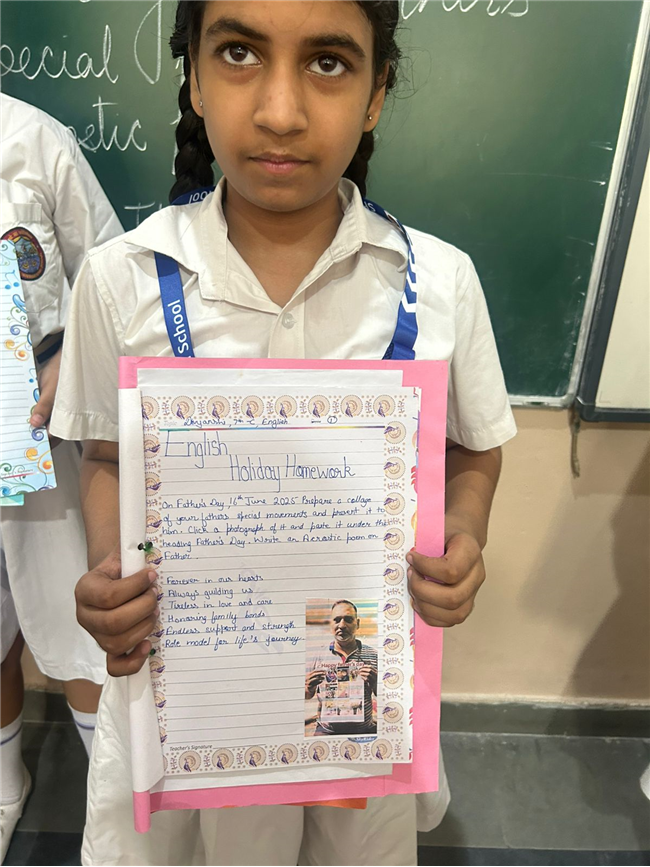 pecial
etic
School
school
Divyanshi, 7th C, English
English
Holiday Homework
On Father's Day, 15th June 2025 Prepare a collage
of your fathers special movements and present it to
him. Click a photograph of it and paste it under the
heading Father's Day. Wrote an Acrostic poem on
Father.
Forever in our hearts
Always guilding us
Tireless in love and care
Honoring family bonds
Endless support and strength
Role model for life's yourney.
Happy
Teacher's Signature